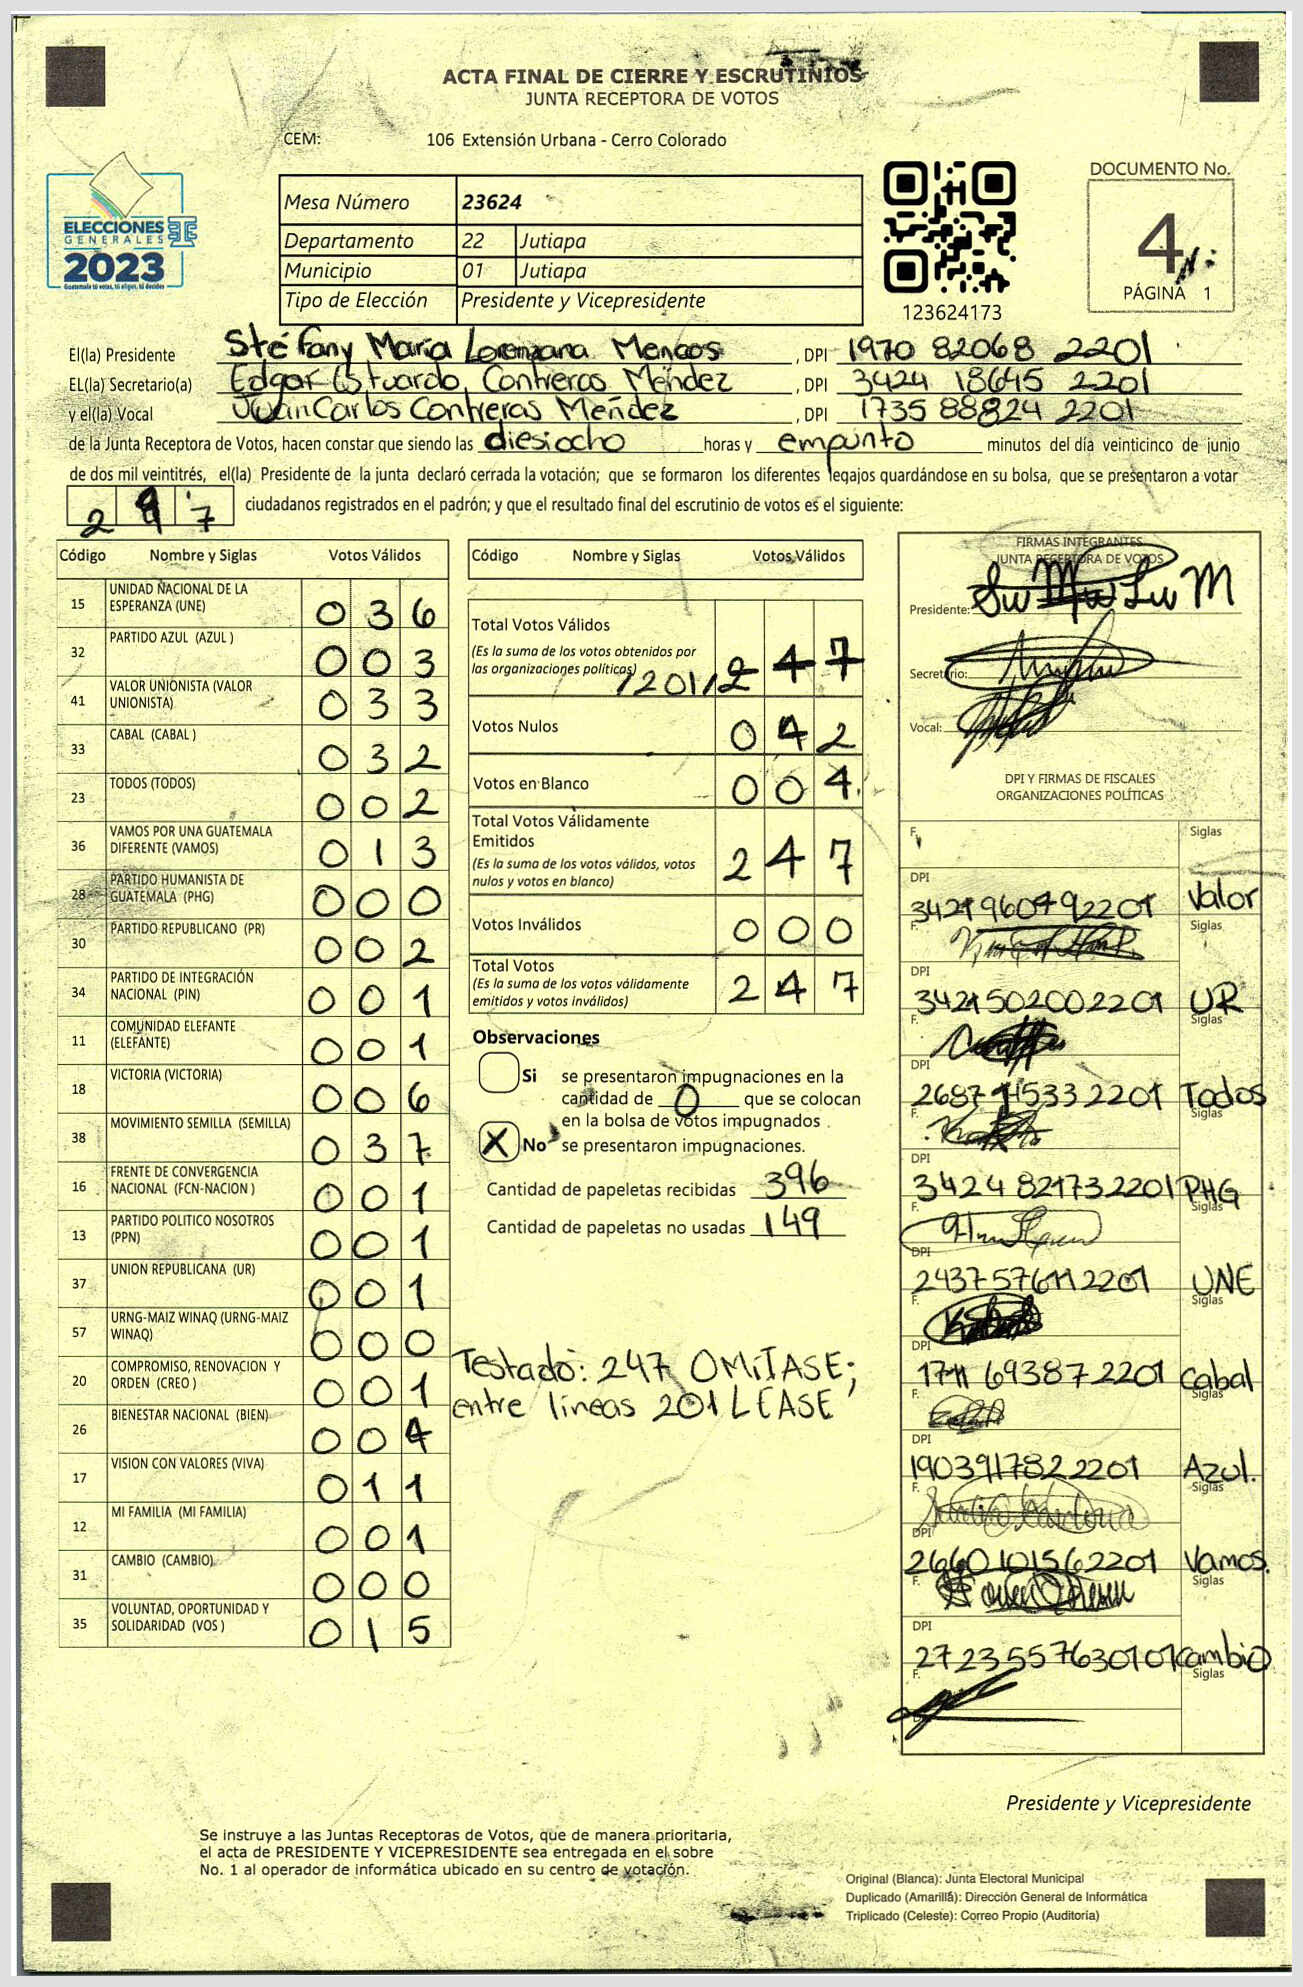 ACTA FINAL DE CIERRE Y ESCRUTINIOS
JUNTA RECEPTORA DE VOTOS
CEM: 106 Extensión Urbana - Cerro Colorado
ELECCIONES
GENERALES
2023
Guatemala tú votas, tú eliges, tú decides
Mesa Número 23624
Departamento 22 Jutiapa
Municipio 01 Jutiapa
Tipo de Elección Presidente y Vicepresidente
123624173
DOCUMENTO No.
4
PÁGINA 1
El(la) Presidente Stéfany María Lorenzana Mencos, DPI 1970 82068 2201
EL(la) Secretario(a) Edgar Estuardo Contreras Méndez, DPI 3424 18645 2201
y el(la) Vocal Juan Carlos Contreras Méndez, DPI 1735 88824 2201
de la Junta Receptora de Votos, hacen constar que siendo las diesiocho horas y empunto minutos del día veinticinco de junio
de dos mil veintitrés, el(la) Presidente de la junta declaró cerrada la votación; que se formaron los diferentes legajos quardándose en su bolsa, que se presentaron a votar
ciudadanos registrados en el padrón; y que el resultado final del escrutinio de votos es el siguiente:
Código Nombre y Siglas Votos Válidos
15 UNIDAD NACIONAL DE LA ESPERANZA (UNE) 036
32 PARTIDO AZUL (AZUL ) 003
41 VALOR UNIONISTA (VALOR UNIONISTA) 033
33 CABAL (CABAL ) 032
23 TODOS (TODOS) 002
36 VAMOS POR UNA GUATEMALA DIFERENTE (VAMOS) 013
28 PARTIDO HUMANISTA DE GUATEMALA (PHG) 000
30 PARTIDO REPUBLICANO (PR) 002
34 PARTIDO DE INTEGRACIÓN NACIONAL (PIN) 001
11 COMUNIDAD ELEFANTE (ELEFANTE) 001
18 VICTORIA (VICTORIA) 006
38 MOVIMIENTO SEMILLA (SEMILLA) 037
16 FRENTE DE CONVERGENCIA NACIONAL (FCN-NACION ) 001
13 PARTIDO POLITICO NOSOTROS (PPN) 001
37 UNION REPUBLICANA (UR) 001
57 URNG-MAIZ WINAQ (URNG-MAIZ WINAQ) 000
20 COMPROMISO, RENOVACION Y ORDEN (CREO ) 001
26 BIENESTAR NACIONAL (BIEN) 004
17 VISION CON VALORES (VIVA) 011
12 MI FAMILIA (MI FAMILIA) 001
31 CAMBIO (CAMBIO) 000
35 VOLUNTAD, OPORTUNIDAD Y SOLIDARIDAD (VOS ) 015
Código Nombre y Siglas Votos Válidos
Total Votos Válidos
(Es la suma de los votos obtenidos por
las organizaciones políticas) /201/ 247
Votos Nulos 042
Votos en Blanco 004
Total Votos Válidamente
Emitidos
(Es la suma de los votos válidos, votos
nulos y votos en blanco) 247
Votos Inválidos 000
Total Votos
(Es la suma de los votos válidamente
emitidos y votos inválidos) 247
Observaciones
Si se presentaron impugnaciones en la
cantidad de 0 que se colocan
en la bolsa de votos impugnados
X No se presentaron impugnaciones.
Cantidad de papeletas recibidas 396
Cantidad de papeletas no usadas 149
Testado: 247 OMITASE;
entre lineas 201 LEASE
FIRMAS INTEGRANTES
JUNTA RECEPTORA DE VOTOS
Presidente:
Secretario:
Vocal:
DPI Y FIRMAS DE FISCALES
ORGANIZACIONES POLÍTICAS
F. Siglas
DPI Valor
F. Siglas
DPI 3421502002201 UR
F. Siglas
DPI Todos
F. Siglas
DPI 3424821732201 PHG
F. Siglas
DPI 2437576112201 UNE
F. Siglas
DPI 1711 69387 2201 Cabal
F. Siglas
DPI 1903917822201 Azul.
F. Siglas
DPI 2660101562201 Vamos.
F. Siglas
DPI 2723557630101 Cambio
F. Siglas
Presidente y Vicepresidente
Se instruye a las Juntas Receptoras de Votos, que de manera prioritaria,
el acta de PRESIDENTE Y VICEPRESIDENTE sea entregada en el sobre
No. 1 al operador de informática ubicado en su centro de votación.
Original (Blanca): Junta Electoral Municipal
Duplicado (Amarilla): Dirección General de Informática
Triplicado (Celeste): Correo Propio (Auditoría)